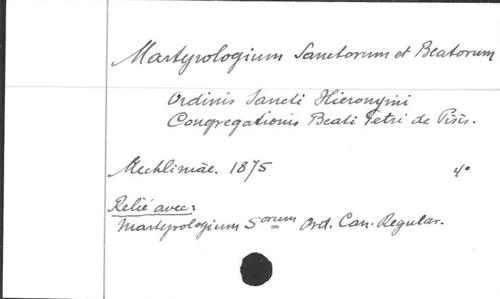 Martyrologium Sanctorum et Beatorum
Ordinis Sancti Hieronymi
Congregationis Beati Petri de Pisis.
Mechliniae. 1875 4°
Relié avec:
Martyrologium Sorum Ord. Can. Regular.